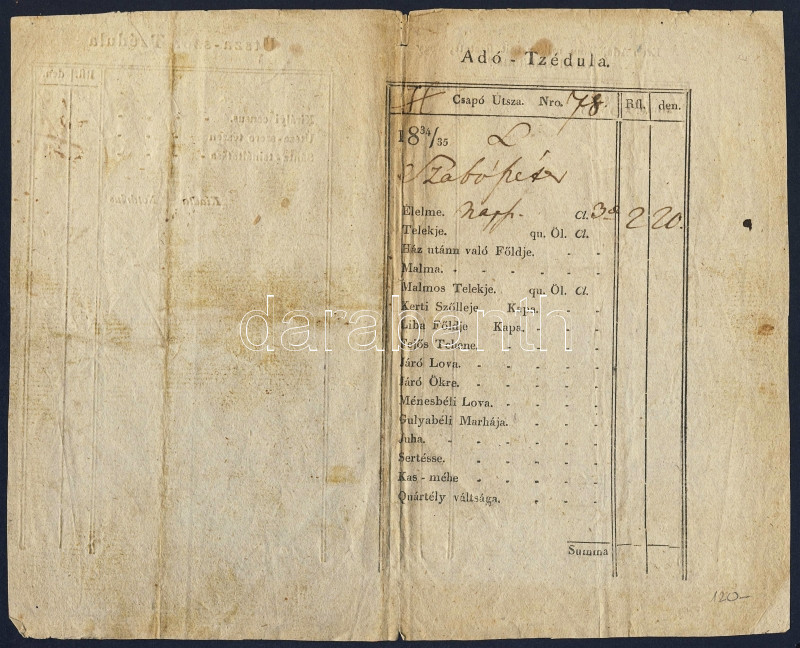 Adó - Tzédula.
Csapó Utsza. Nro. 78. Rfl. den.
18 34/35 L
Szabó Péter
Élelme. napp. Cl. 3 2 20.
Telekje. qu. Öl. Cl.
Ház utánn való Földje. - -
Malma. - - - - - -
Malmos Telekje. qu. Öl. Cl.
Kerti Szőlleje Kapa. - -
Liba Földje Kapa. - - -
Fejős Tehene. - - - -
Járó Lova. - - - - -
Járó Ökre. - - - - -
Ménesbéli Lova. - - - -
Gulyabéli Marhája. - - -
Juha. - - - - - -
Sertésse. - - - - -
Kas - méhe - - - - -
Quártély váltsága. - - -
Summa
120-
darabanth
Utsza - Tzédula
Rfl. den.
Királyi census.